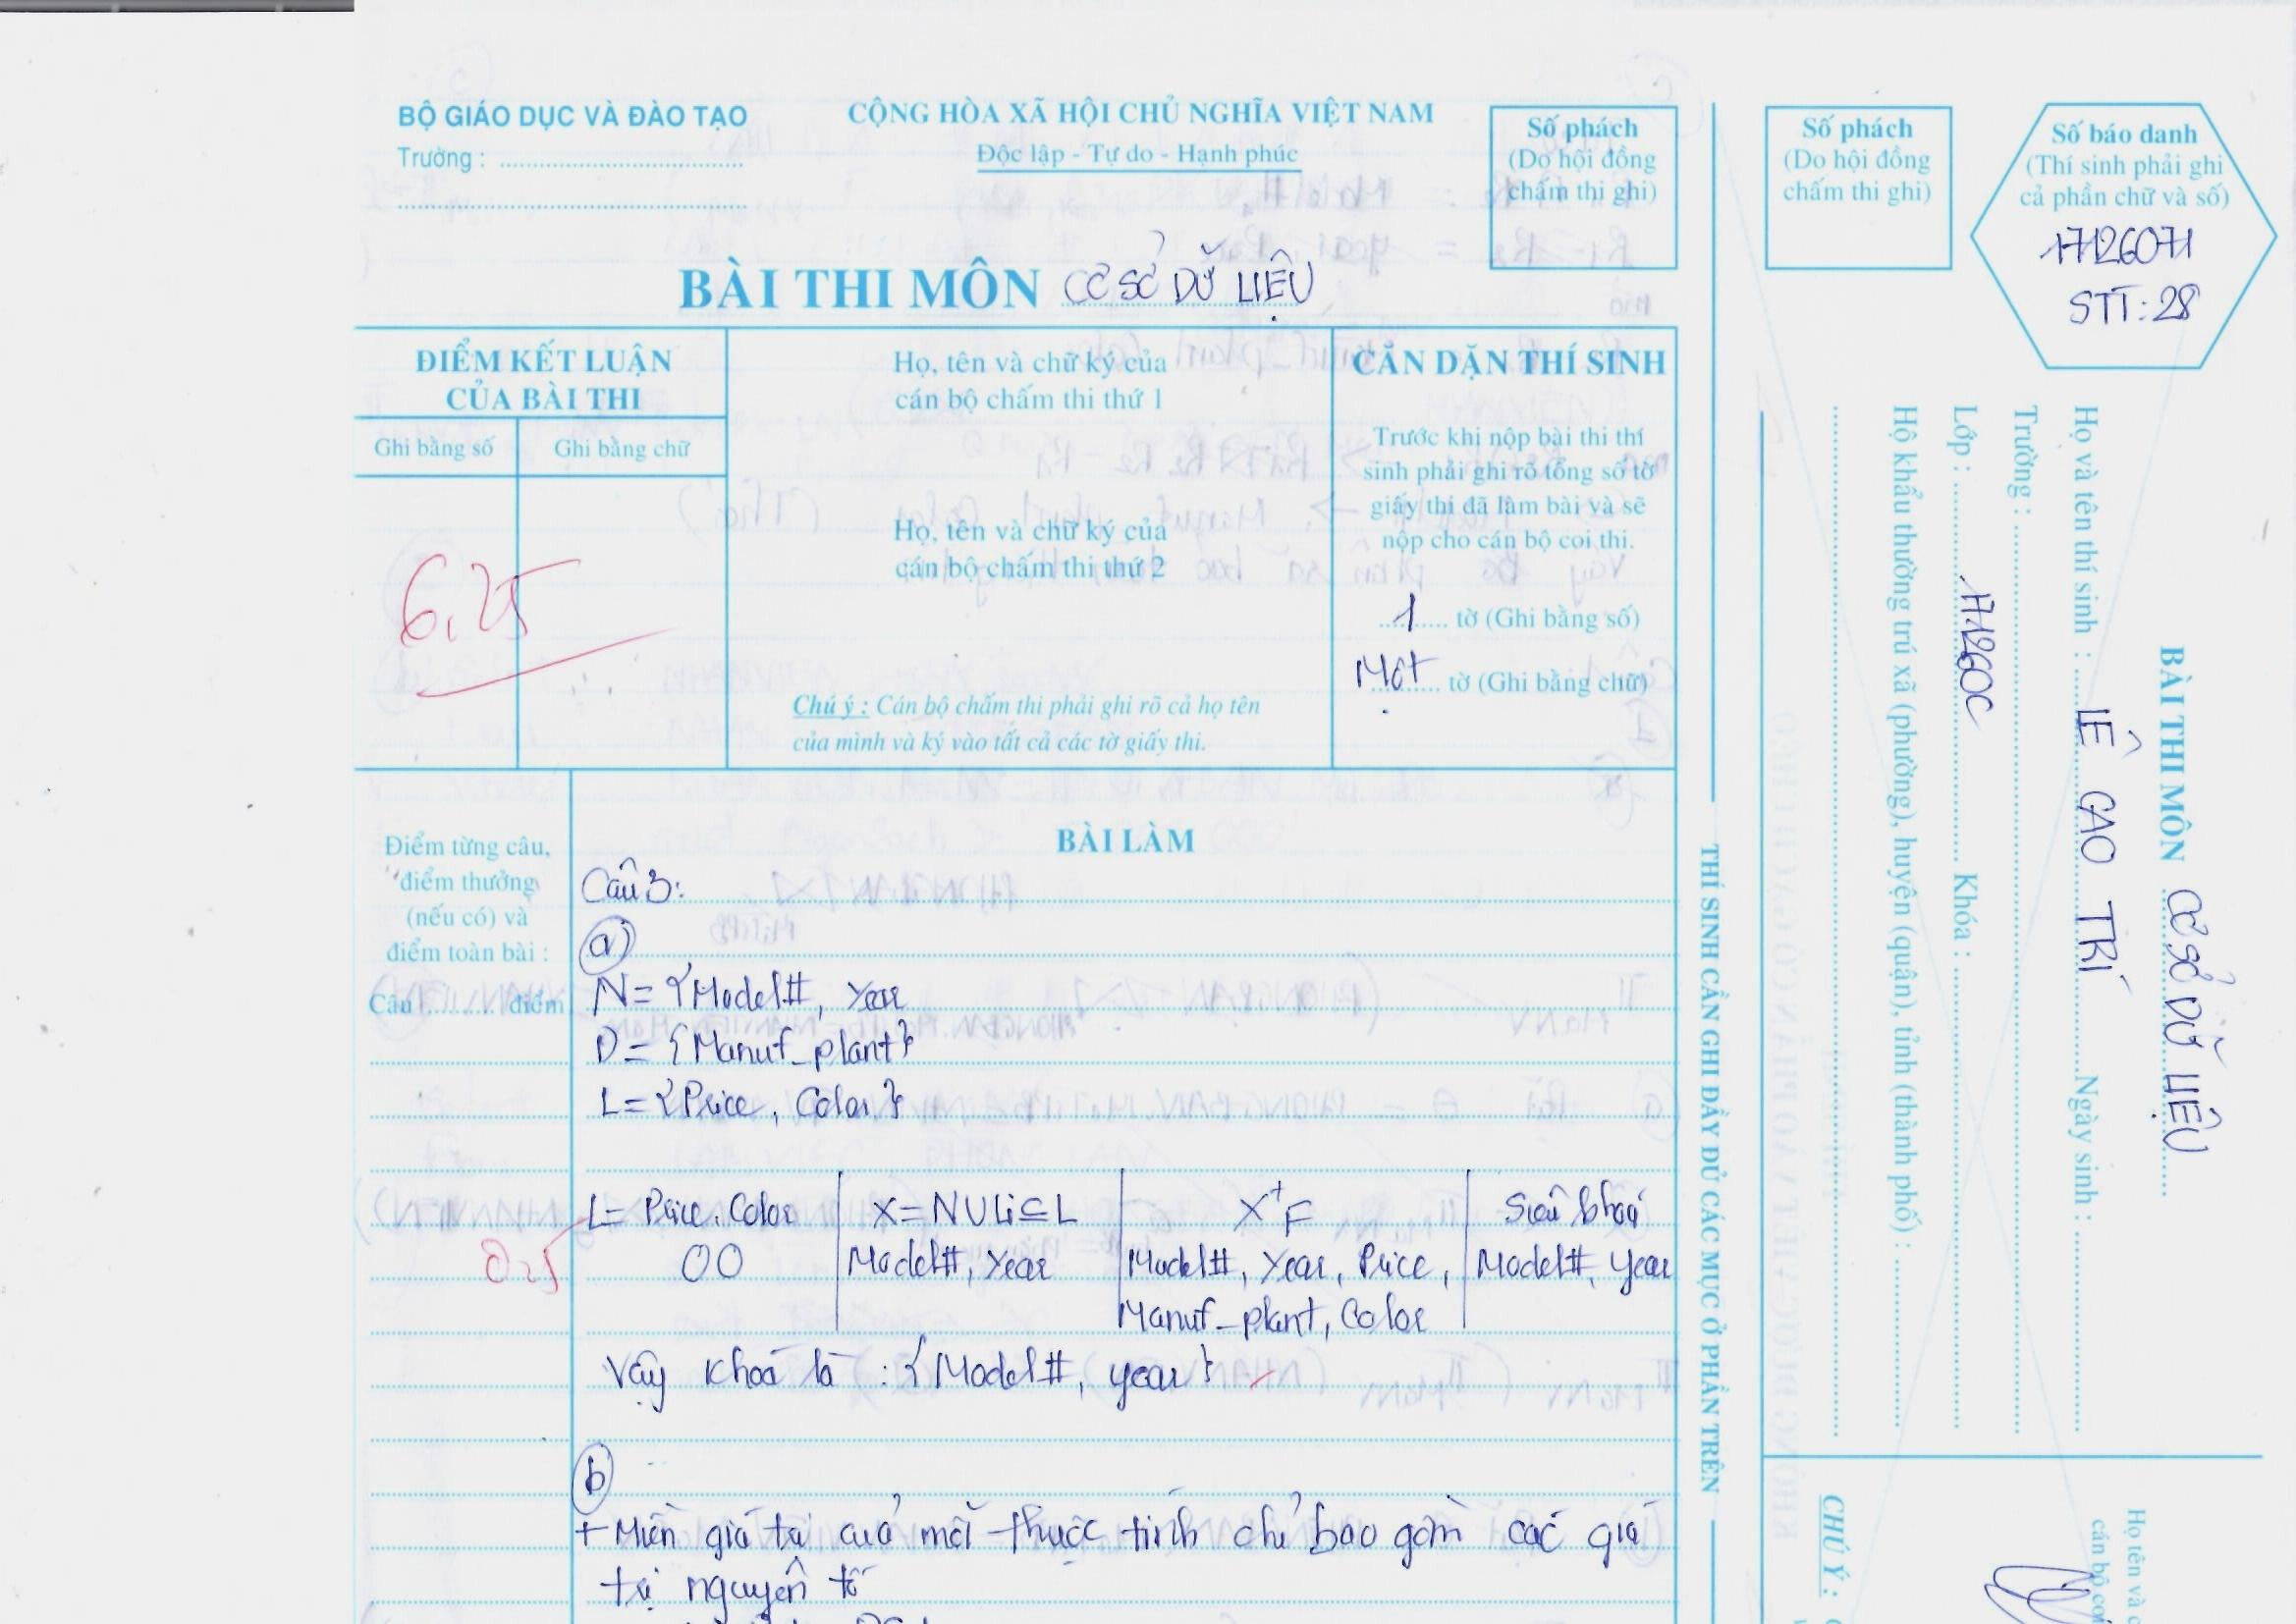 BỘ GIÁO DỤC VÀ ĐÀO TẠO
Trường :
CỘNG HÒA XÃ HỘI CHỦ NGHĨA VIỆT NAM
Độc lập - Tự do - Hạnh phúc
Số phách
(Do hội đồng
chấm thi ghi)
BÀI THI MÔN CƠ SỞ DỮ LIỆU
ĐIỂM KẾT LUẬN
CỦA BÀI THI
Ghi bằng số
Ghi bằng chữ
6,25
Họ, tên và chữ ký của
cán bộ chấm thi thứ 1
Họ, tên và chữ ký của
cán bộ chấm thi thứ 2
Chú ý : Cán bộ chấm thi phải ghi rõ cả họ tên
của mình và ký vào tất cả các tờ giấy thi.
CĂN DẶN THÍ SINH
Trước khi nộp bài thi thí
sinh phải ghi rõ tổng số tờ
giấy thi đã làm bài và sẽ
nộp cho cán bộ coi thi.
1 tờ (Ghi bằng số)
Một tờ (Ghi bằng chữ)
Điểm từng câu,
điểm thưởng
(nếu có) và
điểm toàn bài :
Câu điểm
0.25
BÀI LÀM
Câu 3:
a)
N= {Model#, Year
D= {Manuf_plant}
L= {Price, Color}
L= Price, Color X=NULi⊆L X⁺F Siêu khoá
00 Model#, Year Model#, Year, Price, Model#, Year
Manuf_plant, Color
Vậy khoá là : {Model#, year}
b
+ Miền giá trị của mỗi thuộc tính chỉ bao gồm các giá
trị nguyên tố
THÍ SINH CẦN GHI ĐẦY ĐỦ CÁC MỤC Ở PHẦN TRÊN
Số phách
(Do hội đồng
chấm thi ghi)
Số báo danh
(Thí sinh phải ghi
cả phần chữ và số)
17126071
STT: 28
BÀI THI MÔN CƠ SỞ DỮ LIỆU
Họ và tên thí sinh : LÊ CAO TRÍ Ngày sinh :
Trường :
Lớp : 17126OC Khóa :
Hộ khẩu thường trú xã (phường), huyện (quận), tỉnh (thành phố) :
CHÚ Ý :
Họ tên và
cán bộ coi